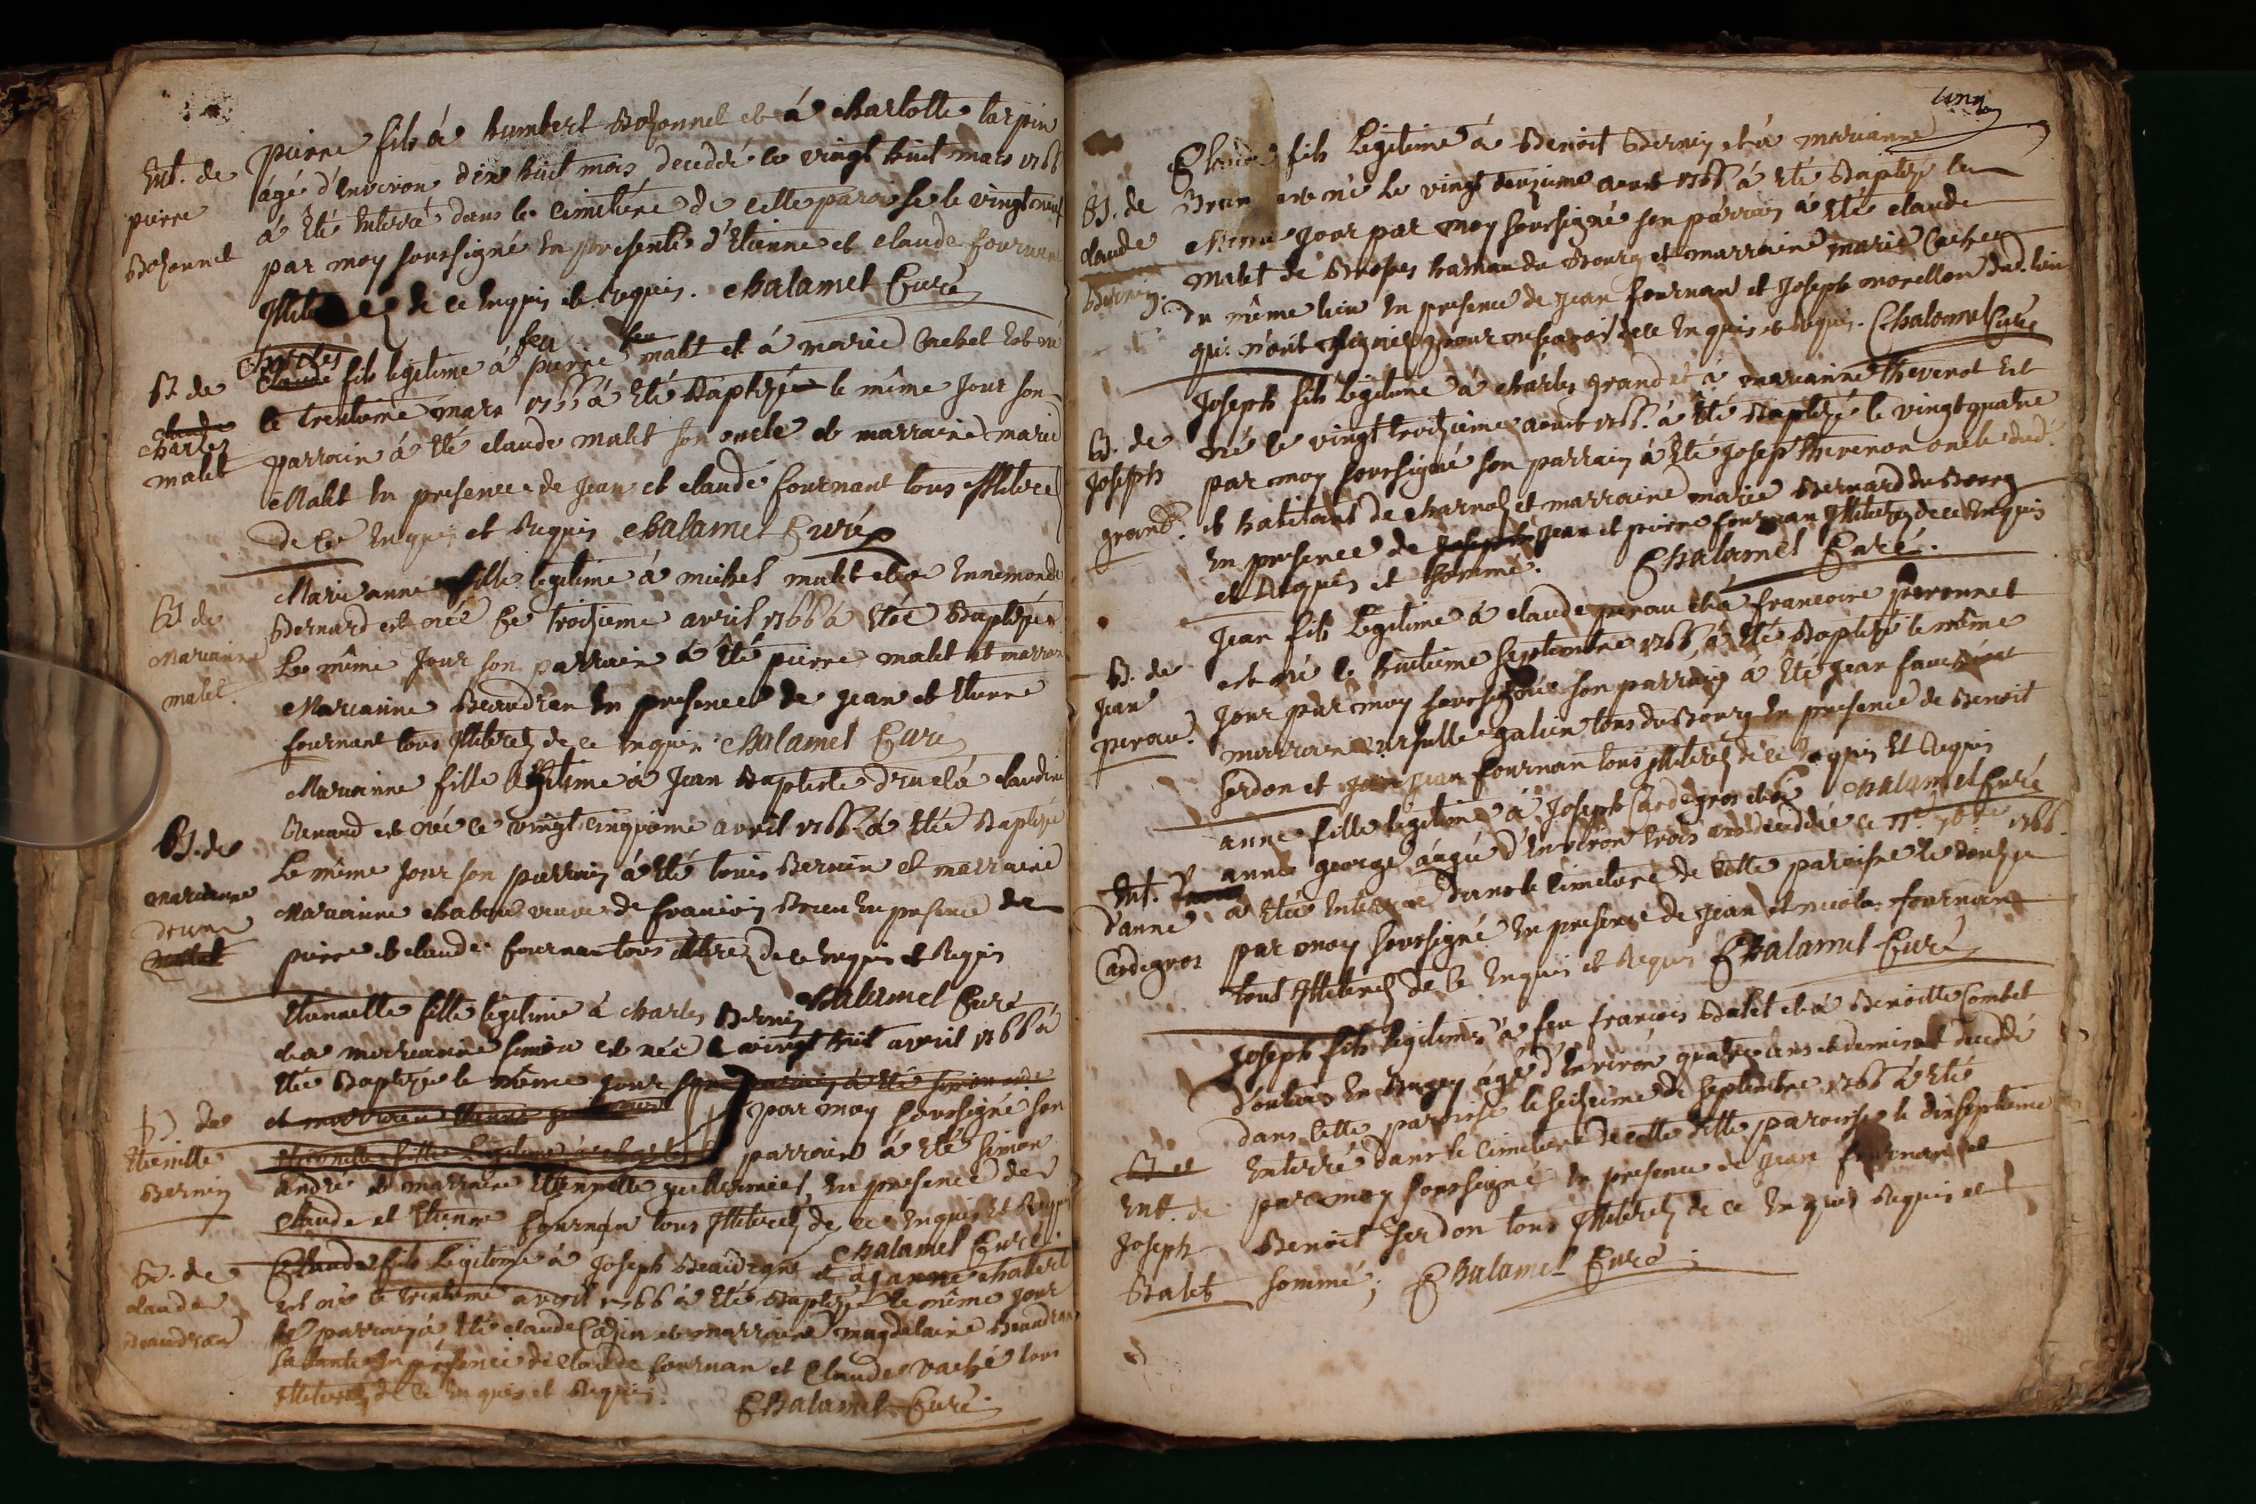 Ent. de
pierre
Bozonnet
pierre fils à humbert Bozonnet et à charlotte tarpin
âgé d'Environ dix huit mois decedé le vingt huit mars 1766
à Eté Enterré dans le cimetière de cette paroisse le vingt neuf
par moy soussigné En presente d'Etienne et claude fournant
de ce Enquis et Requis. Chalamel Curé
Bt. de
claude
charles
malet
charles
claude fils legitime à feu pierre malet et à marie Cachet Est né
le trentieme mars 1766 à Eté Baptizé le même Jour son
parrain à Eté claude malet son oncle et marraine marie
Malet En presence de Jean et claude fournant tous Illiterez
de Ce Enquis et Requis Chalamel Curé
Bt. de
Marianne
malet.
Marie anne fille legitime à michel malet et à Ennemonde
Bernard est née le troizieme avril 1766 à Etée Baptizée
Le même Jour son parrain à Eté pierre malet et marraine
Marianne Beaudran En presence de Jean et Etienne
fournant tous Illiterez de ce Enquis Chalamel Curé
Bt. de
marianne
malet
Marianne fille legitime à Jean Baptiste et à claudine
Renaud est née le vingt cinquieme avril 1766 à Etée Baptizée
Le même Jour son parrain à Eté louis Bernin et marraine
Marianne chabert veuve de françois En presence de
pierre et claude fournan tous illiterez de ce Enquis et Requis
Chalamel Curé
Bt de
Etiennette
Bernin
Etiennette fille legitime à charles Bernin
et à marianne simon est née le vingt huit avril 1766 à
Etée Baptizée le même Jour son parrain à Eté simon andre
et marraine
par moy soussigné son
Etiennette fille Legitime à charles
parrain à Eté simon
andré et marraine Etiennette En presence de
claude et Etienne fournan tous Illiterez de ce Enquis et Requis
Chalamel Curé
Bt. de
claude
Beaudran
Claude fils Legitime à Joseph Beaudran et à Janne chabert
est né le trentieme avril 1766 à Eté Baptizé le même Jour
parrain à Eté claude et marraine magdelaine Beaudran
sa tante En présence de claude fournan et Claude vaché tous
Illiterez de ce Enquis et Requis.
Chalamel Curé.
Bt. de
claude
Bernin.
Claude fils Legitime à Benoit Bernin et à marianne
est né le vingt deuzieme aout 1766 à Eté Baptizé le
même Jour par moy soussigné son parrain à Eté claude
malet de hamau du Bourg et marraine marie Cachet
du même lieu En presence de Jean fournan et Joseph morellon dud. lieu
qui n'ont signés pour ne savoir de ce Enquis et Requis. Chalamel Curé
Bt. de
Joseph
grand.
Joseph fils Legitime à charles grand et à marianne thevenot Est
né le vingt troizieme aout 1766. à Eté Baptizé le vingt quatre
par moy soussigné son parrain à Eté Joseph thevenon oncle dud.
et habitant de charnoz et marraine marie Bernard du Bourg
En presence de Joseph Jean et pierre fournan Illiterez de ce Enquis
et Requis et sommé. Chalamel Curé.
B. de
Jean
perau.
Jean fils Legitime à claude perau et à francoise peronnet
est né le huitieme septembre 1766 à Eté Baptizé le même
Jour par moy soussigné son parrain à Eté Jean
marraine ursulle galien tous du Bourg En presence de Benoit
serdon et Jean Jean fournan tous Illiterez de ce Enquis Et Requis
Chalamel Curé
Ent.
d'anne
Cardegros
anne fille legitime à Joseph Cardegros et à
anne george âagée d'Environ trois ans decedée le 11e 7bre 1766.
à Etée Enterrée dans le cimetiere de cette paroisse le douze
par moy soussigné En presence de Jean et nicolas fournan
tous Illiterez de Ce Enquis et Requis Chalamel Curé
Bt et
Ent. de
Joseph
Balet
Joseph fils legitime à feu françois Balet et à Benoitte Combet
d'oulias En Bugey âgé d'Environ quatre ans et demi est decedé
dans cette paroisse le seizieme de septembre 1766 à Eté
Enterré dans le cimetiere de cette ditte paroisse le dixseptieme
par moy soussigné En presence de Jean fournan et
Benoit serdon tous Illiterez de ce Enquis Requis et
sommé; Chalamel Curé.